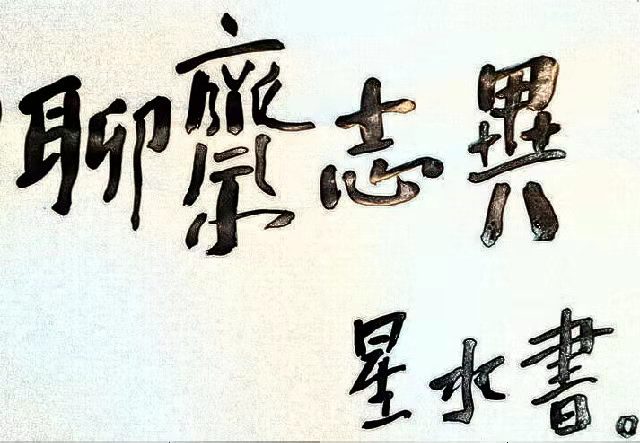 聊齋志異
星水書。